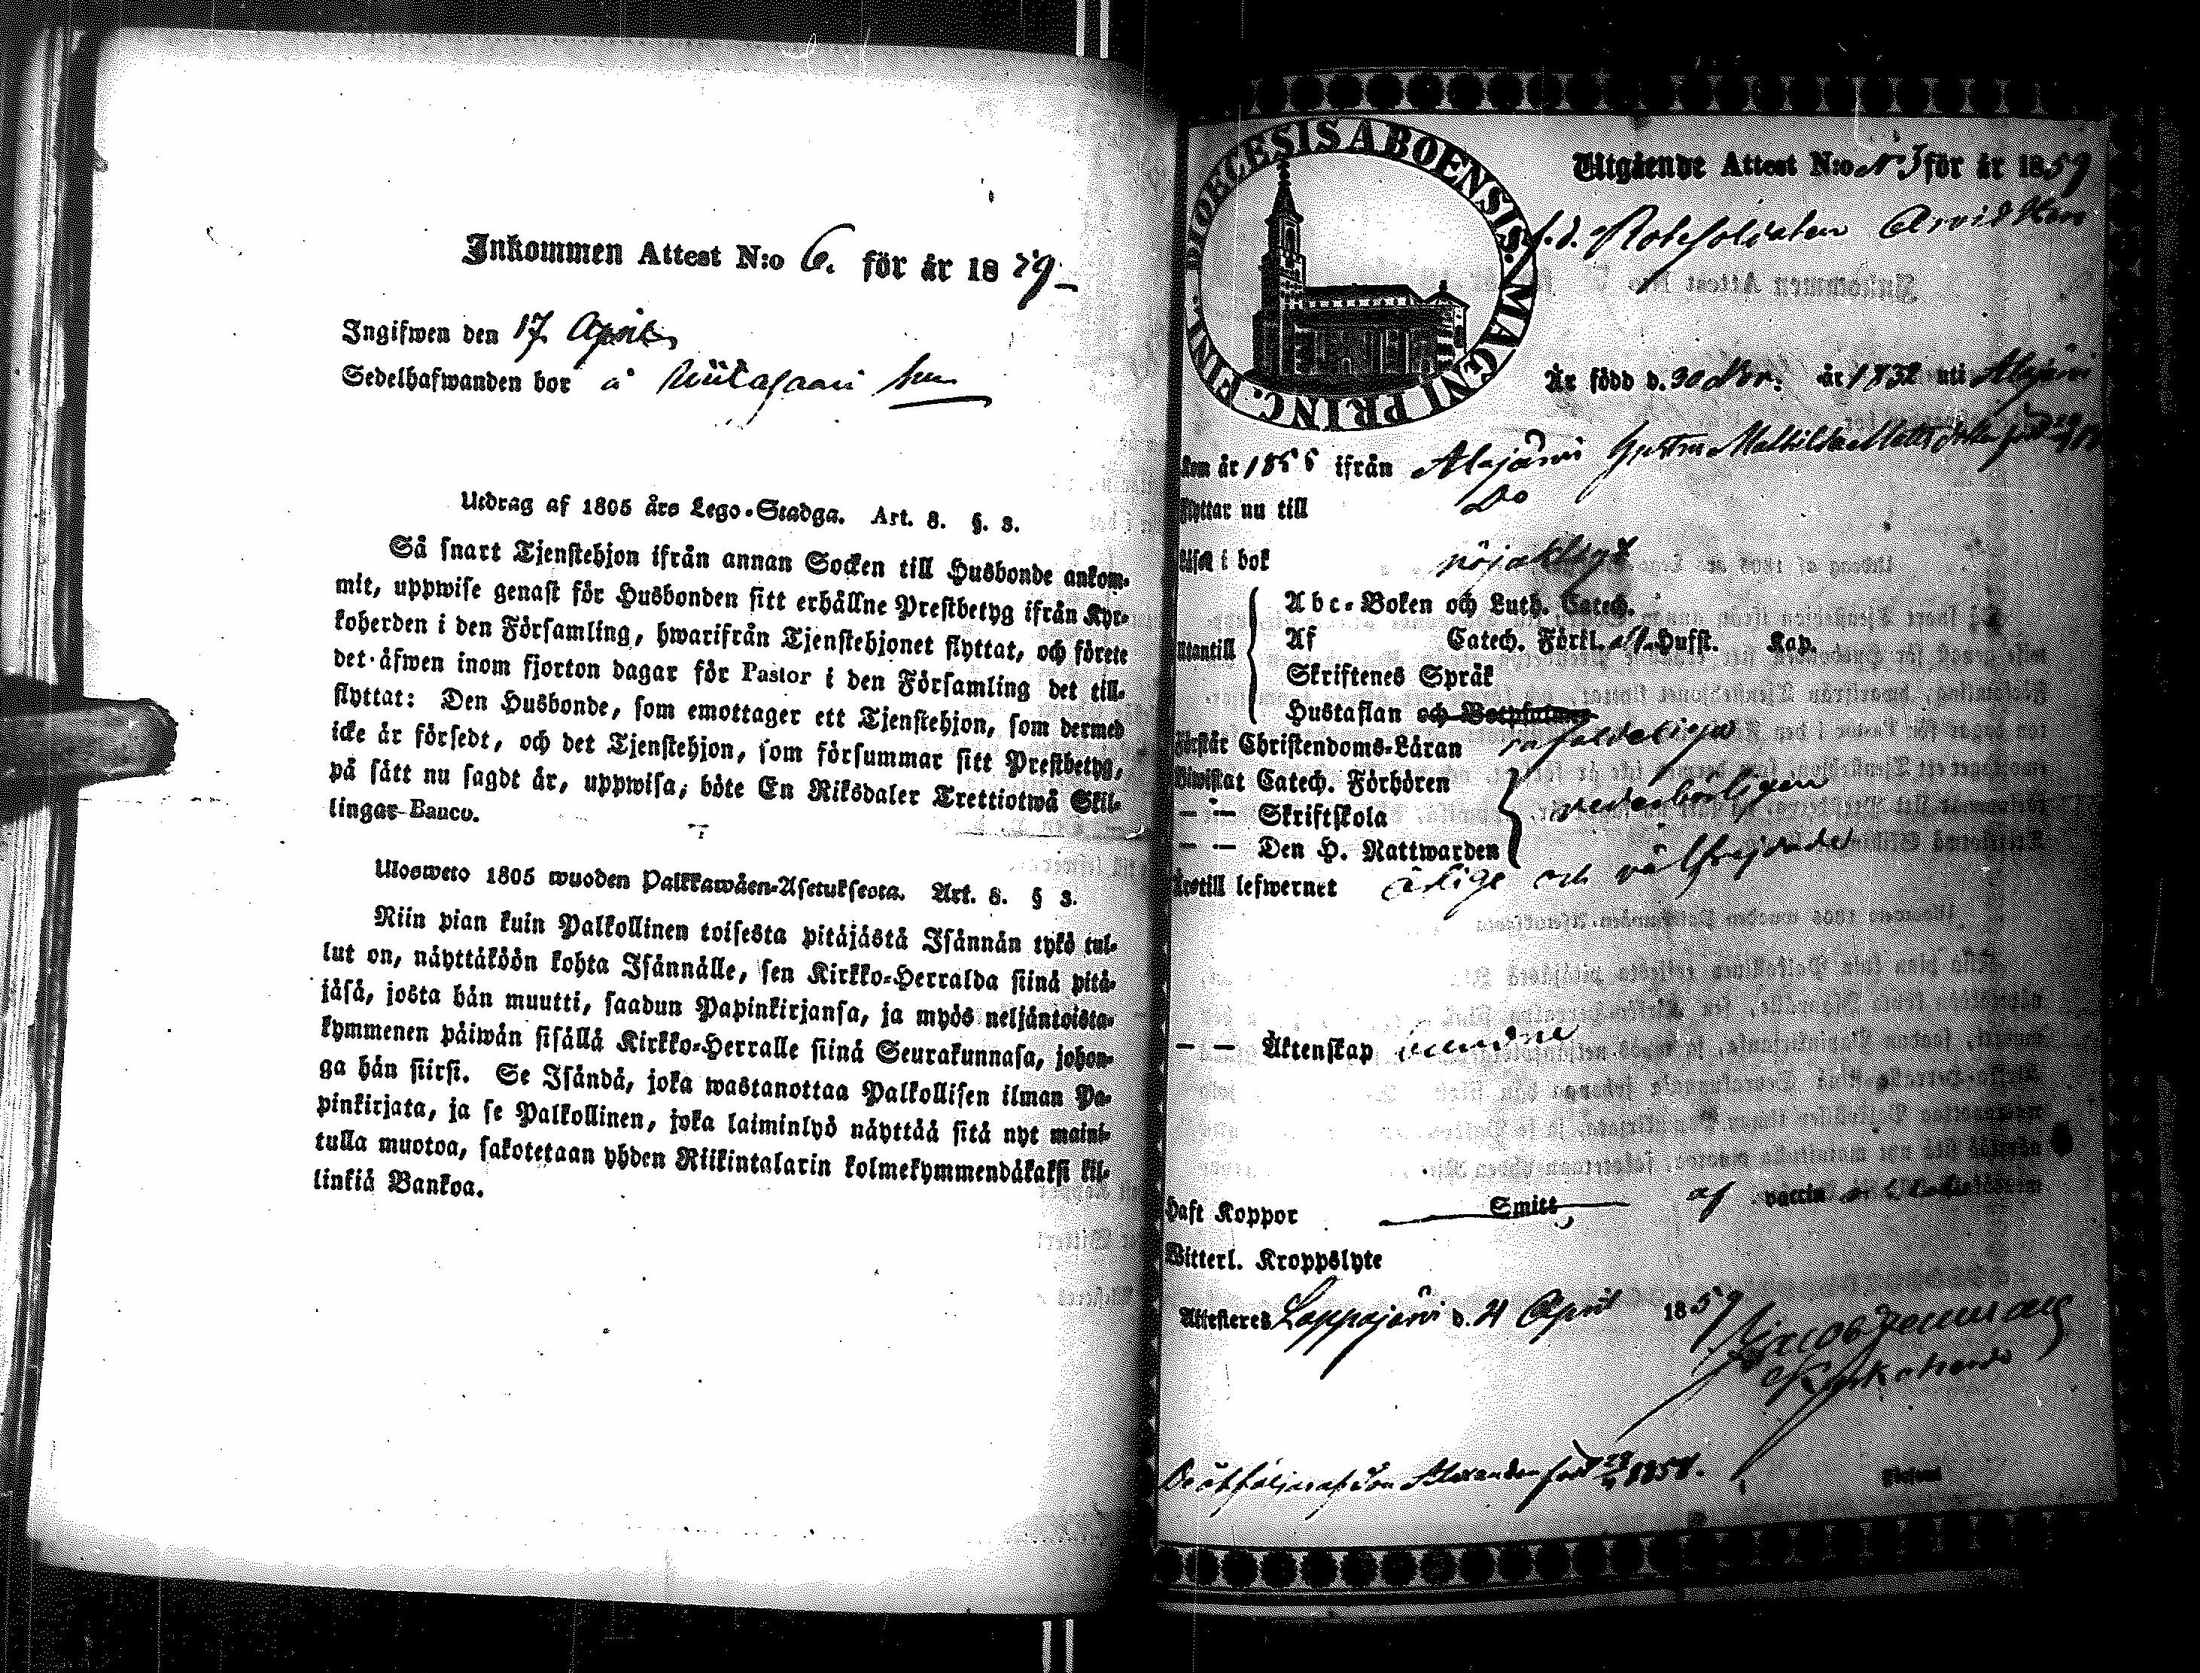 Inkommen Attest N:o 6. för år 1859
Ingifwen den 17 April
Sedelhafwanden bor å
Utdrag af 1805 års Lego-Stadga. Art. 8. §. 3.
Så snart Tjenstehjon ifrån annan Socken till Husbonde ankom-
mit, uppwise genast för Husbonden sitt erhållne Prestbetyg ifrån Kyr-
koherden i den Församling, hwarifrån Tjenstehjonet flyttat, och förete
det äfwen inom fjorton dagar för Pastor i den Församling det till-
flyttat: Den Husbonde, som emottager ett Tjenstehjon, som dermed
icke är försedt, och det Tjenstehjon, som försummar sitt Prestbetyg,
på sätt nu sagdt är, uppwisa, böte En Riksdaler Trettiotwå Skil-
lingar Banco.
Ulosweto 1805 wuoden Palkkawäen-Asetuksesta. Art. 8. § 3.
Niin pian kuin Palkollinen toisesta pitäjästä Isännän tykö tul-
lut on, näyttäköön kohta Isännälle, sen Kirkko-Herralda siinä pitä-
jäsä, josta hän muutti, saadun Papinkirjansa, ja myös neljäntoista-
kymmenen päiwän sisällä Kirkko-Herralle siinä Seurakunnasa, johon-
ga hän siirsi. Se Isändä, joka wastanottaa Palkollisen ilman Pa-
pinkirjata, ja se Palkollinen, joka laiminlyö näyttää sitä nyt maini-
tulla muotoa, sakotetaan yhden Riikintalarin kolmekymmendäkaksi kil-
linkiä Bankoa.
DIOECESIS ABOENSIS. MAGNI PRINC. FINL.
Utgående Attest N:o för år 1859
f.d. Rotesoldaten Arvid
Är född d. 30 Nov. år 1832 uti Alajärvi
kom år 185 ifrån Alajärvi Mathilda Matts
flyttar nu till Do
läser i bok nöjaktigt
Utantill
Abc-Boken och Luth. Catech.
Af Catech. Förkl. Hufst. Kap.
Skriftenes Språk
Hustaflan och Botpsalmer
Förstår Christendoms-Läran
Biwistat Catech. Förhören
— — Skriftskola vederbörligen
— — Den H. Nattwarden
Ärstill lefwernet ärlige och välfrejdade
— — Äktenskap
Haft Koppor Smitt, af vaccin
Witterl. Kroppslyte
Attesteres Lappajärvi d. 4 April 1859
Jacob
Kyrkoherde
Alexander född 1858.